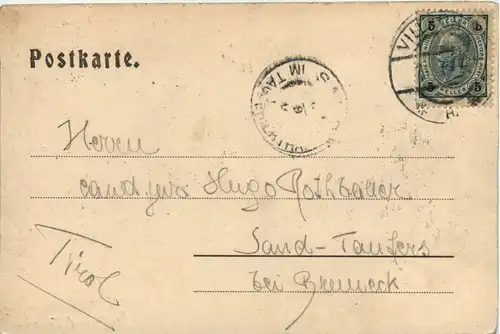 Postkarte.
5 5
HELLER
Herrn
cand. jur. Hugo Rothbauer
Sand-Taufers
bei Bruneck
Tirol